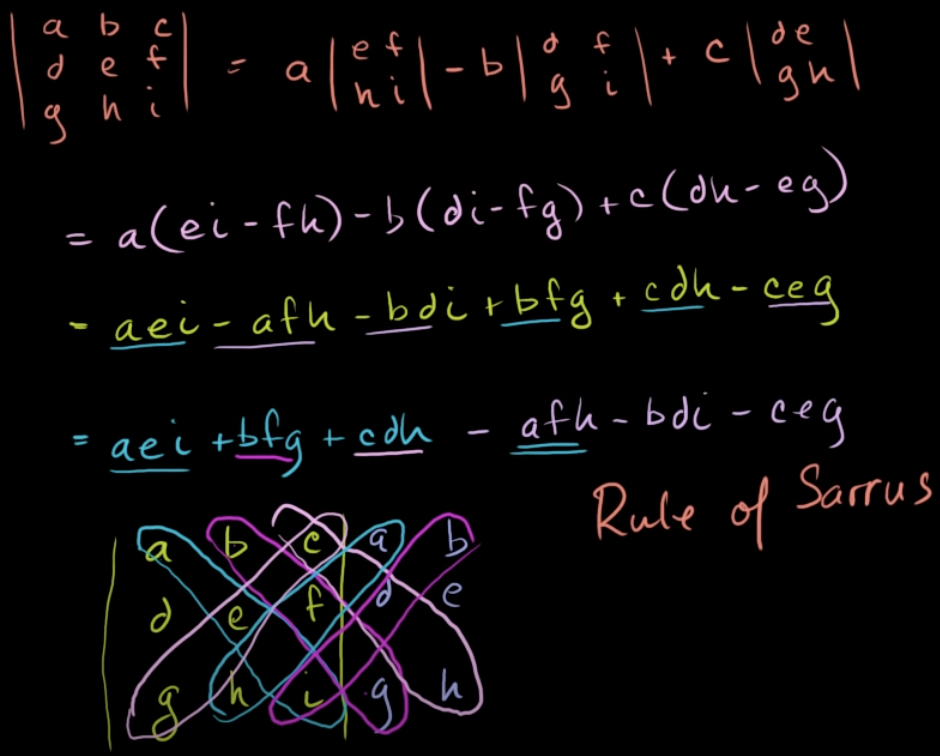 | a b c |
| d e f | = a | e f | - b | d f | + c | d e |
| g h i |     | h i |     | g i |     | g h |
= a(ei - fh) - b(di - fg) + c(dh - eg)
- aei - afh - bdi + bfg + cdh - ceg
= aei + bfg + cdh - afh - bdi - ceg
Rule of Sarrus
a b c a b
d e f d e
g h i g h